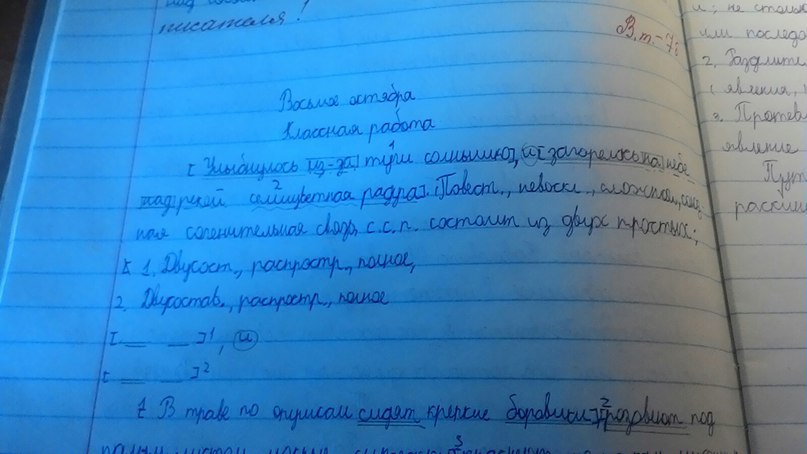 писателя!
В.т.-7
Восьмое октября
Классная работа
[Улыбнулось из-за тучи солнышко]1, и [загорелась на небе
семицветная радуга]2. (Повест., невоскл., сложное, союз
ная сочинительная связь, с.с.п. состоит из двух простых:
1. Двусост., распростр., полное,
2. Двусостав., распростр., полное
[ ]1, и
[ ]2
В траве по опушкам сидят крепкие боровики,]2[розовеют под
или последо
2. Разделите
явления,
3. Против
явление
раскин